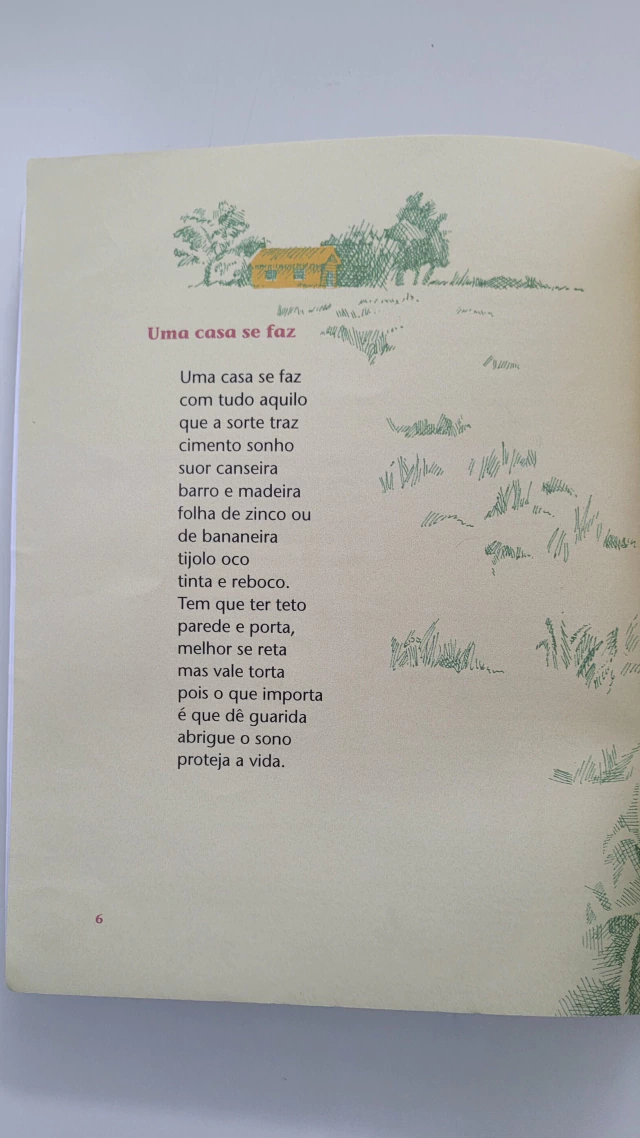 Uma casa se faz
Uma casa se faz
com tudo aquilo
que a sorte traz
cimento sonho
suor canseira
barro e madeira
folha de zinco ou
de bananeira
tijolo oco
tinta e reboco.
Tem que ter teto
parede e porta,
melhor se reta
mas vale torta
pois o que importa
é que dê guarida
abrigue o sono
proteja a vida.
6